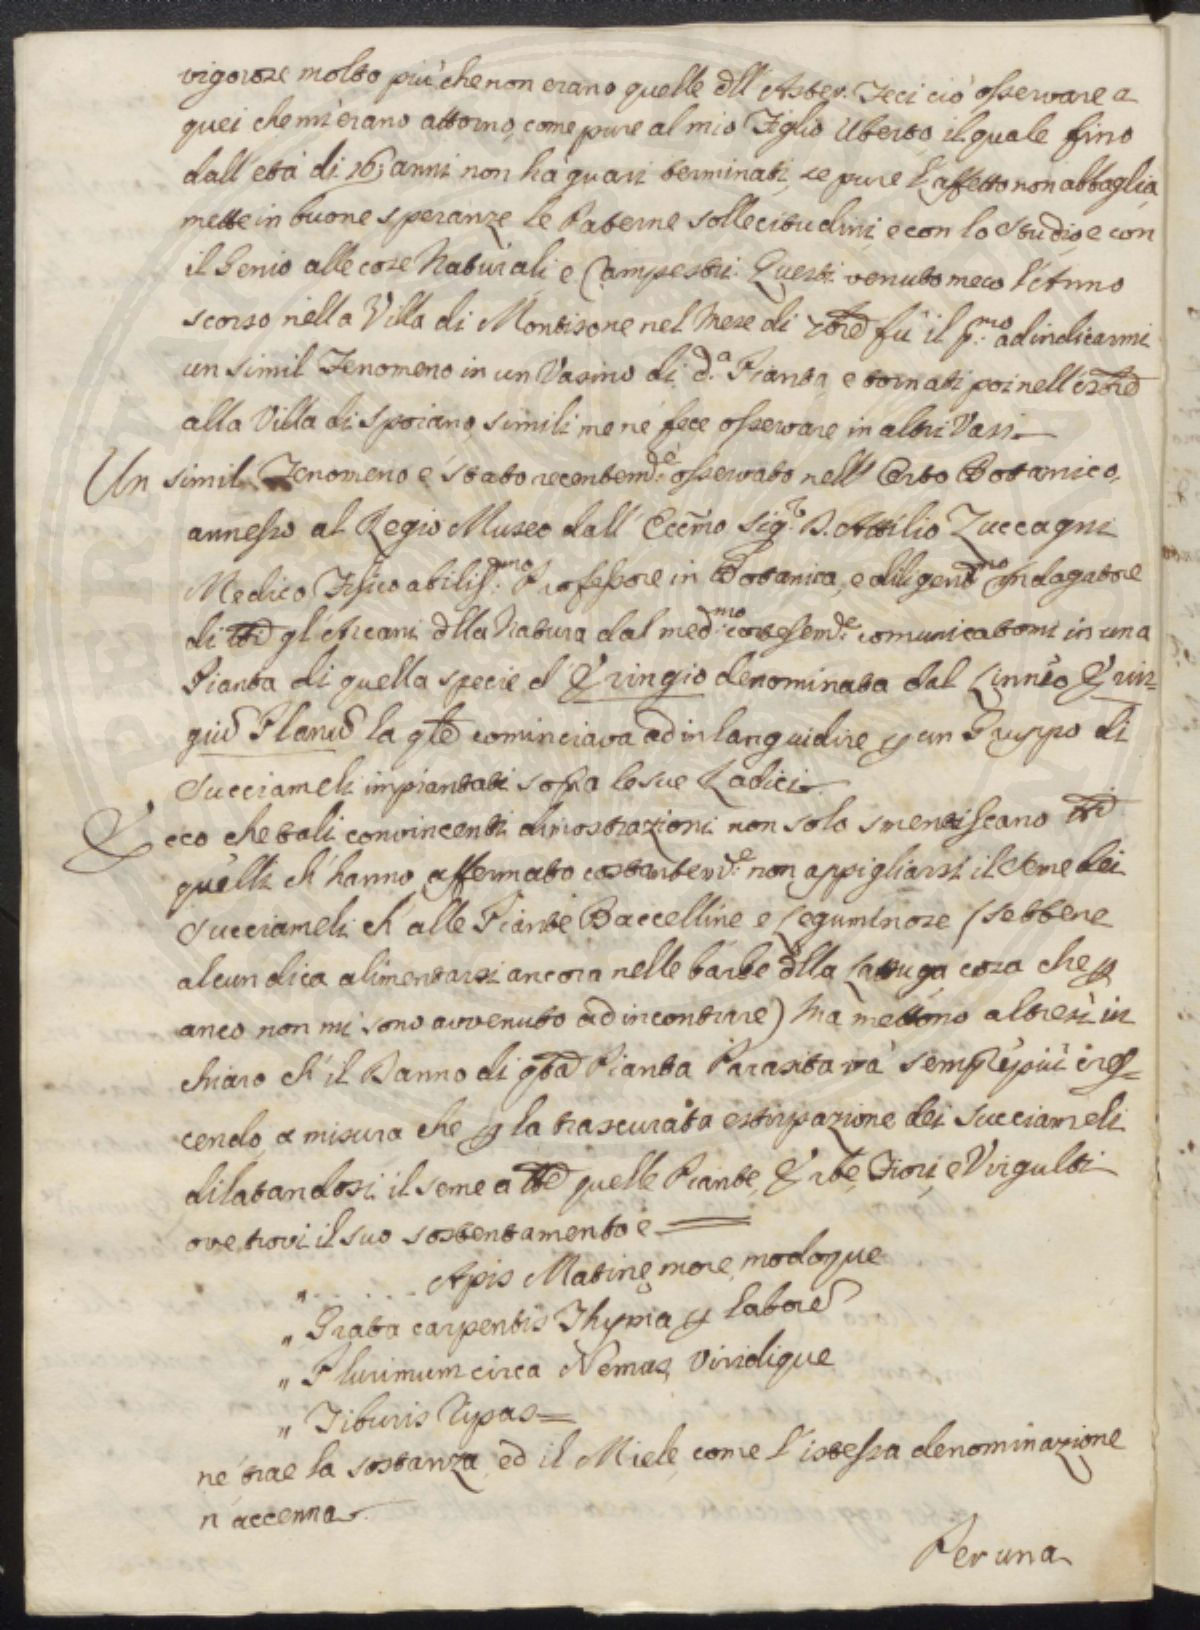 vigorose molto più che non erano quelle dll' Aster. Feci ciò osservare a
quei che m'erano attorno, come pure al mio Figlio Uberto, il quale fino
dall' età di 16 anni non ha guari terminati, se pure l'affetto non abbaglia,
mette in buone speranze le Paterne sollecitudini e con lo studio, e con
il Genio alle cose Naturali e Campestri. Questi venuto meco l'Anno
scorso nella Villa di Montisone nel Mese di 7bre fù il p.mo ad indicarmi
un simil Fenomeno in un Vasino di d.a Pianta, e tornati poi nell' 8bre
alla Villa di Spoiano, simili me ne fece osservare in altri Vasi.
Un simil Fenomeno è stato recentem.e osservato nell' Orto Botanico,
annesso al Regio Museo dall' Eccmo Sig.r D. Attilio Zuccagni
Medico Fisico abiliss.mo Professore in Botanica, e diligent.mo Indagatore
di tti gl' Arcani dlla Natura dal med.mo cortesem.e comunicatomi in una
Pianta di quella specie d' Eringio denominata dal Linneo Erin=
giu Planu la qle cominciava ad inlanguidire p un Gruppo di
Succiameli impiantati sopra le sue Radici.
Ecco che tali convincenti dimostrazioni non solo smentiscano tti
quelli ch' hanno affermato costantem.e non appigliarsi il seme dei
Succiameli ch' alle Piante Baccelline e Leguminose (sebbene
alcun dica alimentarsi ancora nelle barbe dlla Lattuga cosa che p
anco non mi sono avvenuto ad incontrare) Ma mettono altresì in
chiaro ch' il Danno di qta Pianta Parasita và sempre più cres=
cendo, a misura che p la trascurata estirpazione dei Succiameli
dilatandosi il seme a tte quelle Piante, Erbe, Fiori, e Virgulti
ove trovi il suo sostentamento e =
" . . . . . . Apis Matinę more, modoque
" Grata carpentis Thyma p labore
" Plurimum circa Nemus, Viridique
" Tiburis Ripas =
né trae la sostanza, ed il Miele, come l'istessa denominazione
n' accenna.
Per una